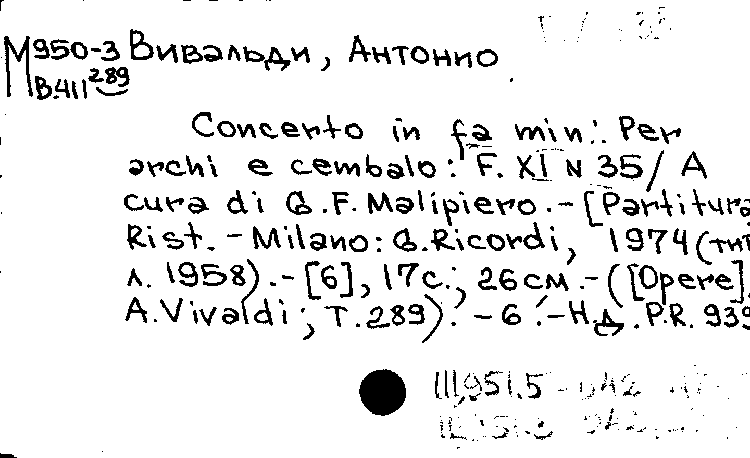 М950-3 Вивальди, Антонио
В.411 289
Concerto in fa min.: Per
archi e cembalo: F. XI N 35/ A
cura di G.F. Malipiero. - [Partitura
Rist. - Milano: G.Ricordi, 1974 (тит
л. 1958). - [6], 17с.; 26см. - ([Opere].
A.Vivaldi; Т.289). - б. - Н.д. P.R. 939
III,951.5 -